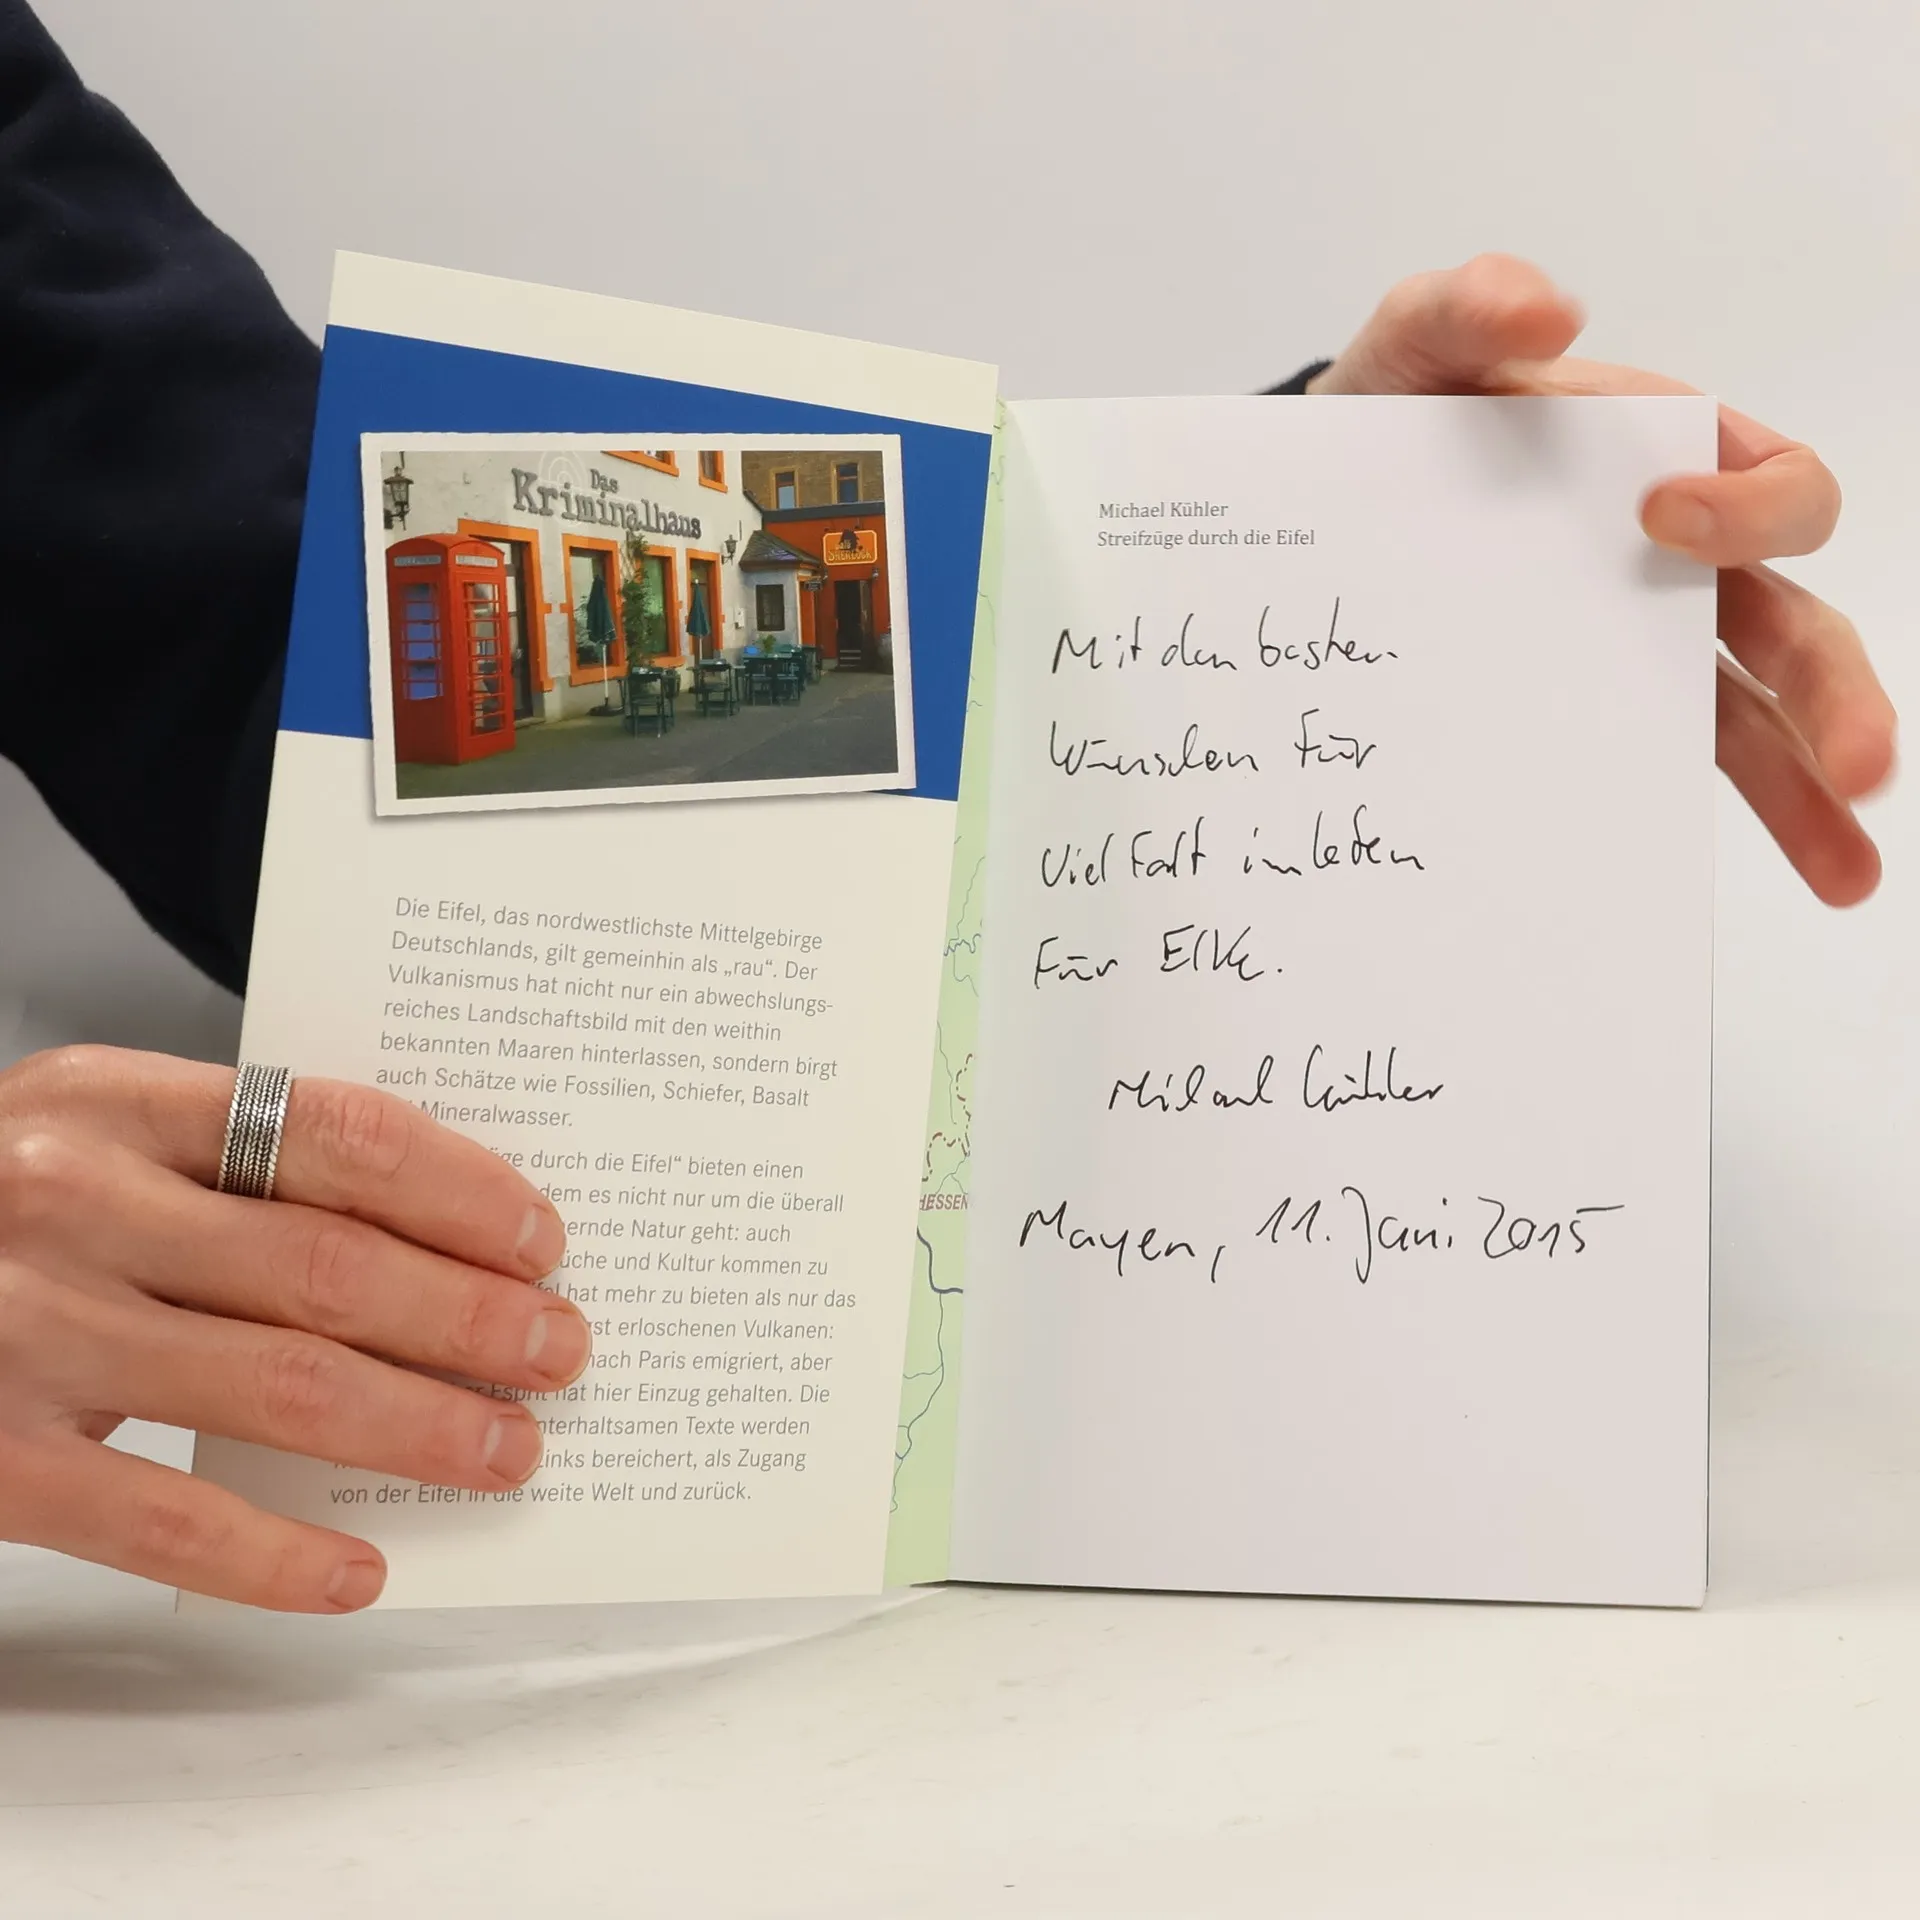 Das
Kriminalhaus
Café
SHERLOCK
Die Eifel, das nordwestlichste Mittelgebirge
Deutschlands, gilt gemeinhin als „rau“. Der
Vulkanismus hat nicht nur ein abwechslungs-
reiches Landschaftsbild mit den weithin
bekannten Maaren hinterlassen, sondern birgt
auch Schätze wie Fossilien, Schiefer, Basalt
Mineralwasser.
durch die Eifel“ bieten einen
dem es nicht nur um die überall
Natur geht: auch
und Kultur kommen zu
hat mehr zu bieten als nur das
erloschenen Vulkanen:
nach Paris emigriert, aber
Esprit hat hier Einzug gehalten. Die
Texte werden
Links bereichert, als Zugang
von der Eifel in die weite Welt und zurück.
HESSEN
Michael Kühler
Streifzüge durch die Eifel
Mit den besten
Wünschen für
Vielfalt im Leben
Für Elke.
Michael Kühler
Mayen, 11. Juni 2015